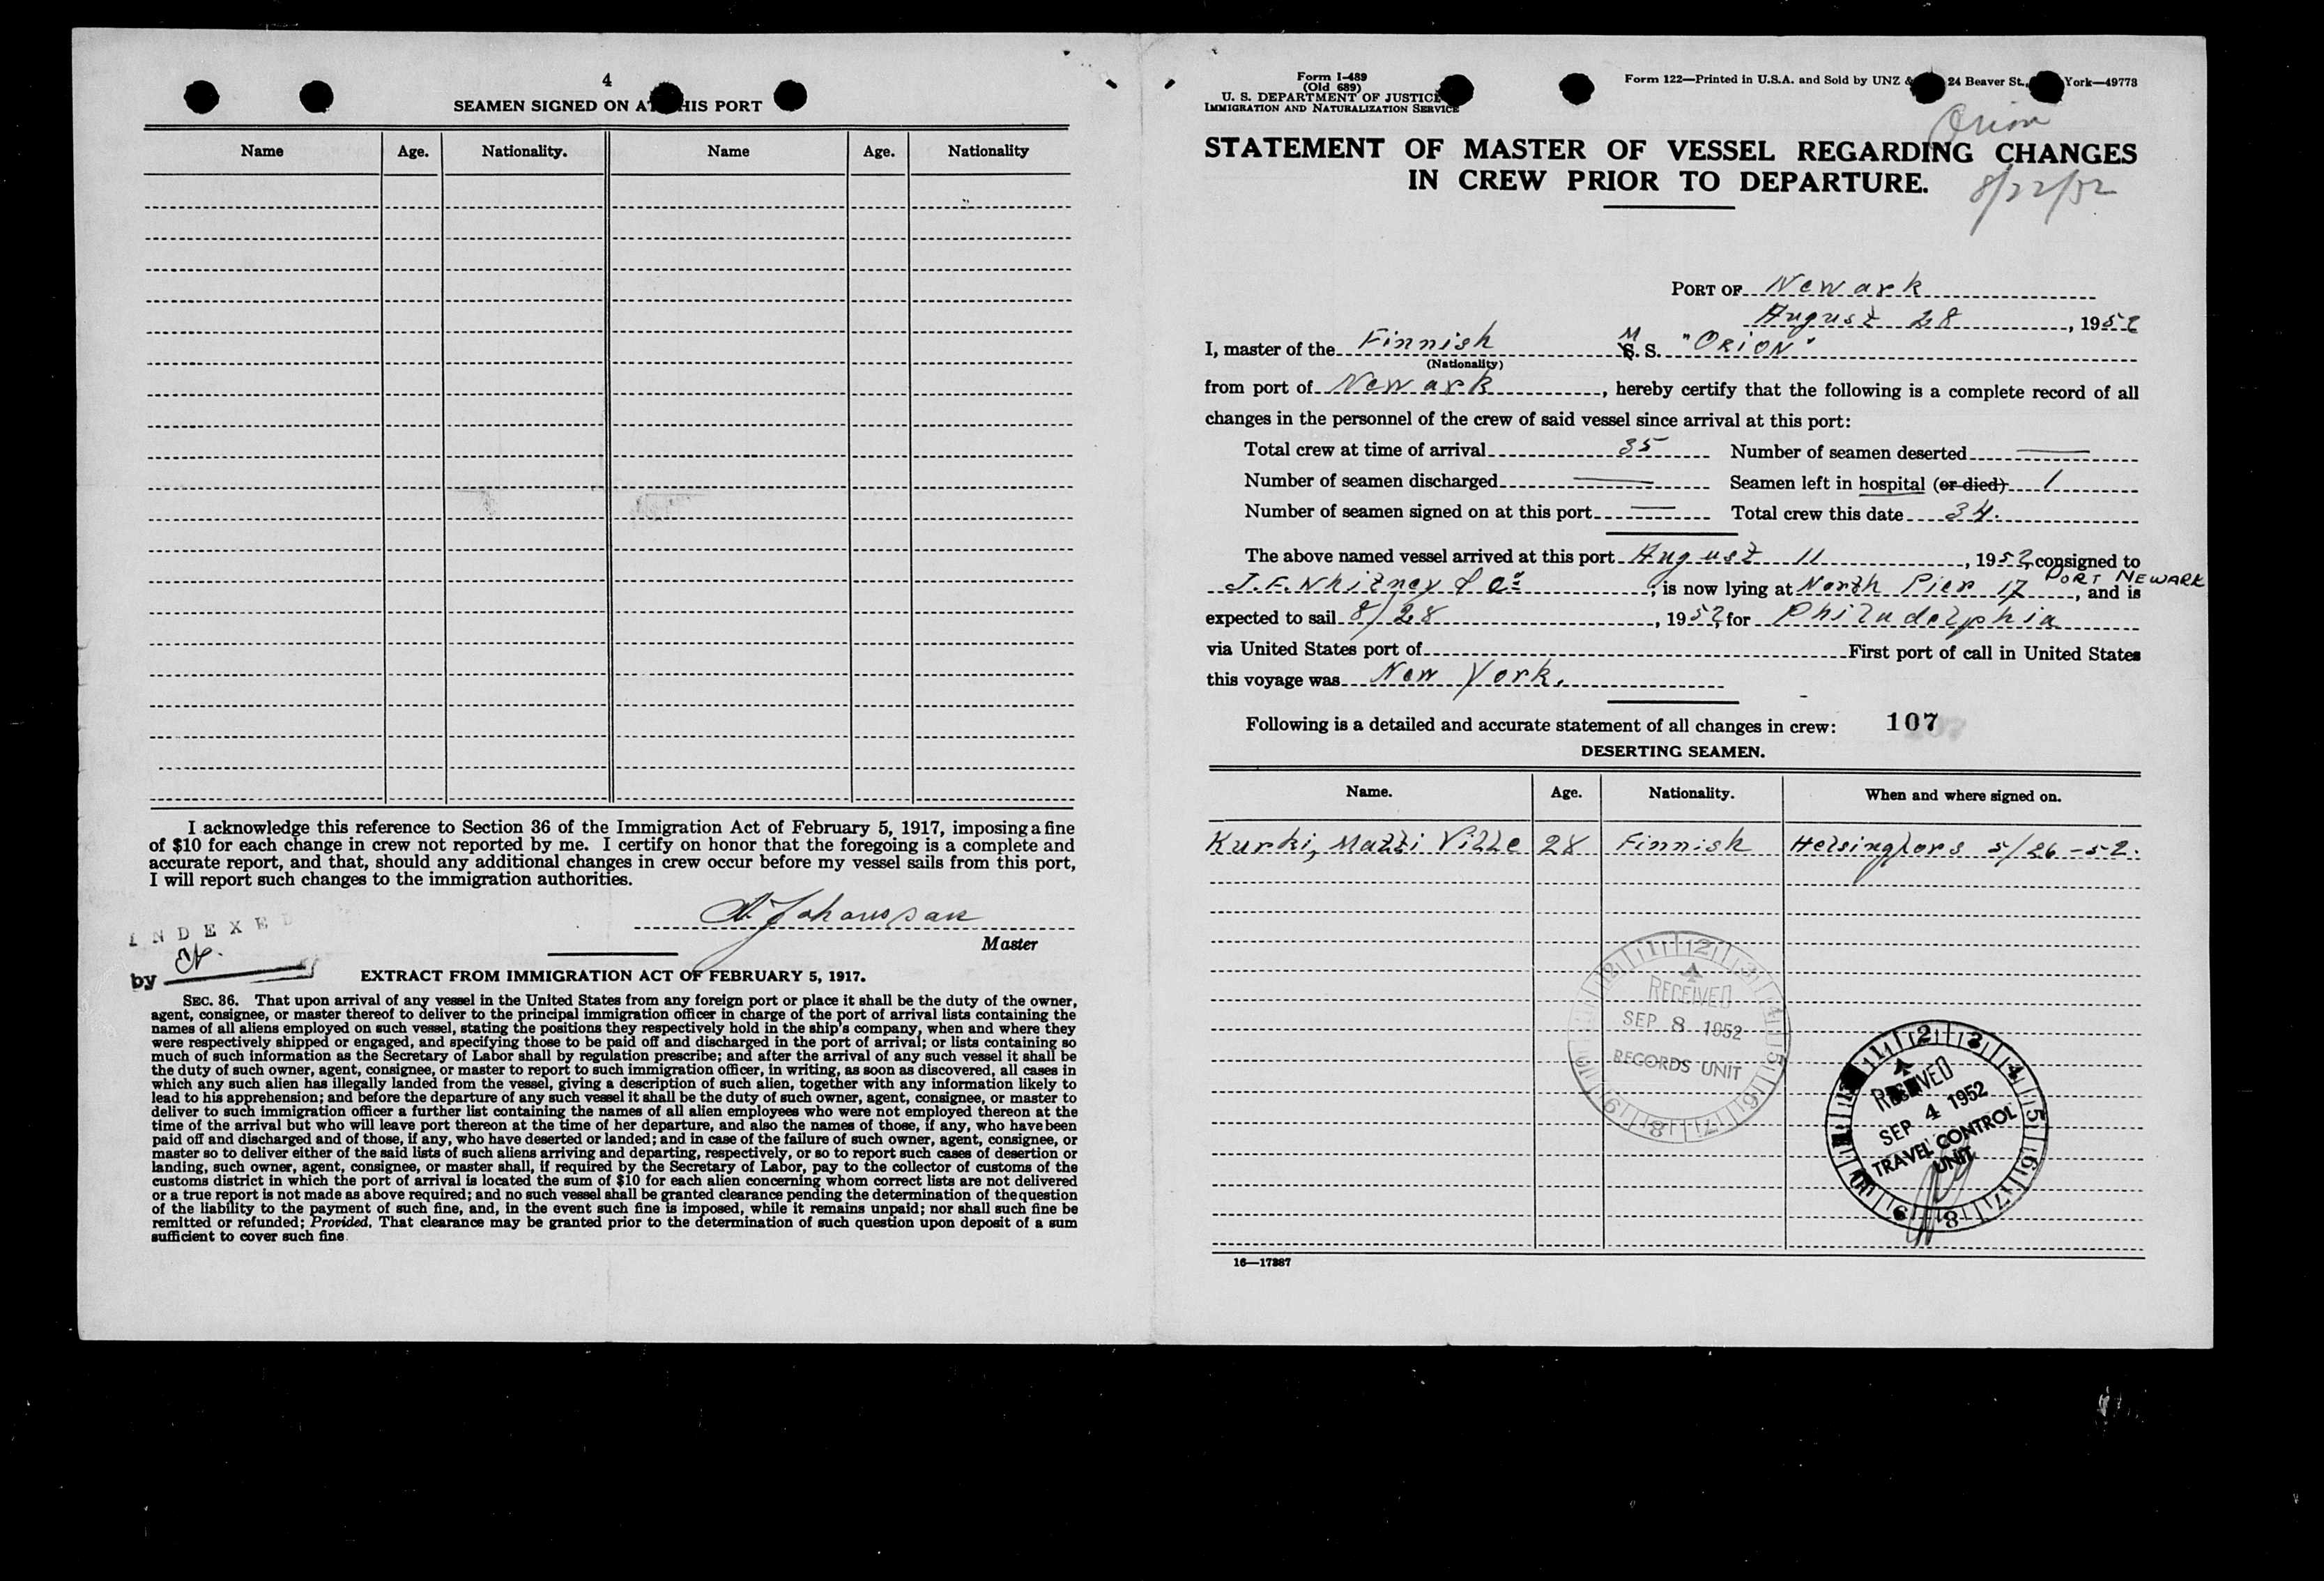 4
SEAMEN SIGNED ON AT THIS PORT
Name Age. Nationality. Name Age. Nationality
I acknowledge this reference to Section 36 of the Immigration Act of February 5, 1917, imposing a fine
of $10 for each change in crew not reported by me. I certify on honor that the foregoing is a complete and
accurate report, and that, should any additional changes in crew occur before my vessel sails from this port,
I will report such changes to the immigration authorities.
Master
INDEXED
by
EXTRACT FROM IMMIGRATION ACT OF FEBRUARY 5, 1917.
SEC. 36. That upon arrival of any vessel in the United States from any foreign port or place it shall be the duty of the owner,
agent, consignee, or master thereof to deliver to the principal immigration officer in charge of the port of arrival lists containing the
names of all aliens employed on such vessel, stating the positions they respectively hold in the ship's company, when and where they
were respectively shipped or engaged, and specifying those to be paid off and discharged in the port of arrival; or lists containing so
much of such information as the Secretary of Labor shall by regulation prescribe; and after the arrival of any such vessel it shall be
the duty of such owner, agent, consignee, or master to report to such immigration officer, in writing, as soon as discovered, all cases in
which any such alien has illegally landed from the vessel, giving a description of such alien, together with any information likely to
lead to his apprehension; and before the departure of any such vessel it shall be the duty of such owner, agent, consignee, or master to
deliver to such immigration officer a further list containing the names of all alien employees who were not employed thereon at the
time of the arrival but who will leave port thereon at the time of her departure, and also the names of those, if any, who have been
paid off and discharged and of those, if any, who have deserted or landed; and in case of the failure of such owner, agent, consignee, or
master so to deliver either of the said lists of such aliens arriving and departing, respectively, or so to report such cases of desertion or
landing, such owner, agent, consignee, or master shall, if required by the Secretary of Labor, pay to the collector of customs of the
customs district in which the port of arrival is located the sum of $10 for each alien concerning whom correct lists are not delivered
or a true report is not made as above required; and no such vessel shall be granted clearance pending the determination of the question
of the liability to the payment of such fine, and, in the event such fine is imposed, while it remains unpaid; nor shall such fine be
remitted or refunded; Provided, That clearance may be granted prior to the determination of such question upon deposit of a sum
sufficient to cover such fine.
Form I-489
(Old 689)
U. S. DEPARTMENT OF JUSTICE
IMMIGRATION AND NATURALIZATION SERVICE
Form 122—Printed in U.S.A. and Sold by UNZ & 24 Beaver St., York—49773
Orion
STATEMENT OF MASTER OF VESSEL REGARDING CHANGES
IN CREW PRIOR TO DEPARTURE.
8/22/52
PORT OF Newark
August 28, 1952
I, master of the Finnish M S. S. "ORION"
(Nationality)
from port of Newark, hereby certify that the following is a complete record of all
changes in the personnel of the crew of said vessel since arrival at this port:
Total crew at time of arrival 35 Number of seamen deserted —
Number of seamen discharged — Seamen left in hospital (or died) 1
Number of seamen signed on at this port — Total crew this date 34.
The above named vessel arrived at this port August 11, 1952, consigned to
J.F. Whitney & Co; is now lying at North Pier 17 PORT NEWARK, and is
expected to sail 8/28, 1952, for Philadelphia
via United States port of First port of call in United States
this voyage was New York.
Following is a detailed and accurate statement of all changes in crew: 107
DESERTING SEAMEN.
Name. Age. Nationality. When and where signed on.
Kurki, Matti Ville 28 Finnish Helsingfors 5/26-52.
RECEIVED
SEP 8 1952
RECORDS UNIT
RECEIVED
SEP 4 1952
TRAVEL CONTROL
UNIT
16—17387